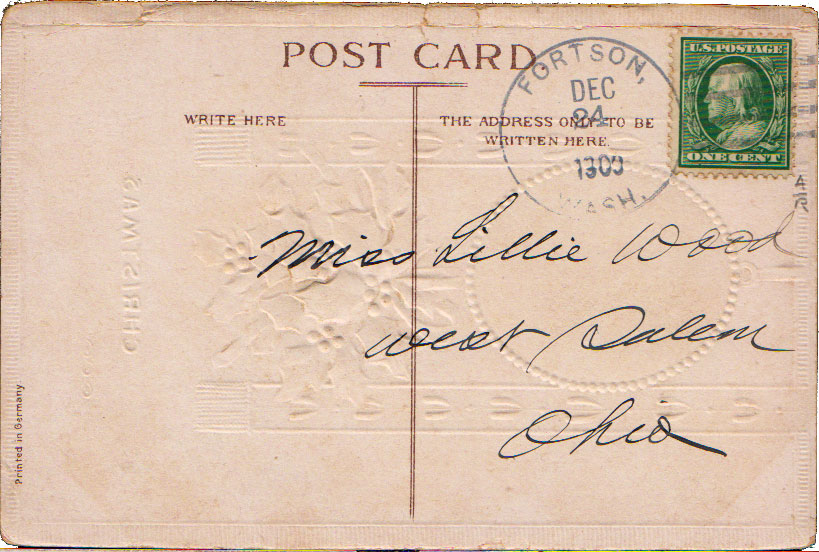 POST CARD.
WRITE HERE
THE ADDRESS ONLY TO BE
WRITTEN HERE.
FORTSON,
DEC
24
1909
WASH.
U.S. POSTAGE
ONE CENT
Miss Lillie Wood
West Salem
Ohio
CHRISTMAS
Printed in Germany